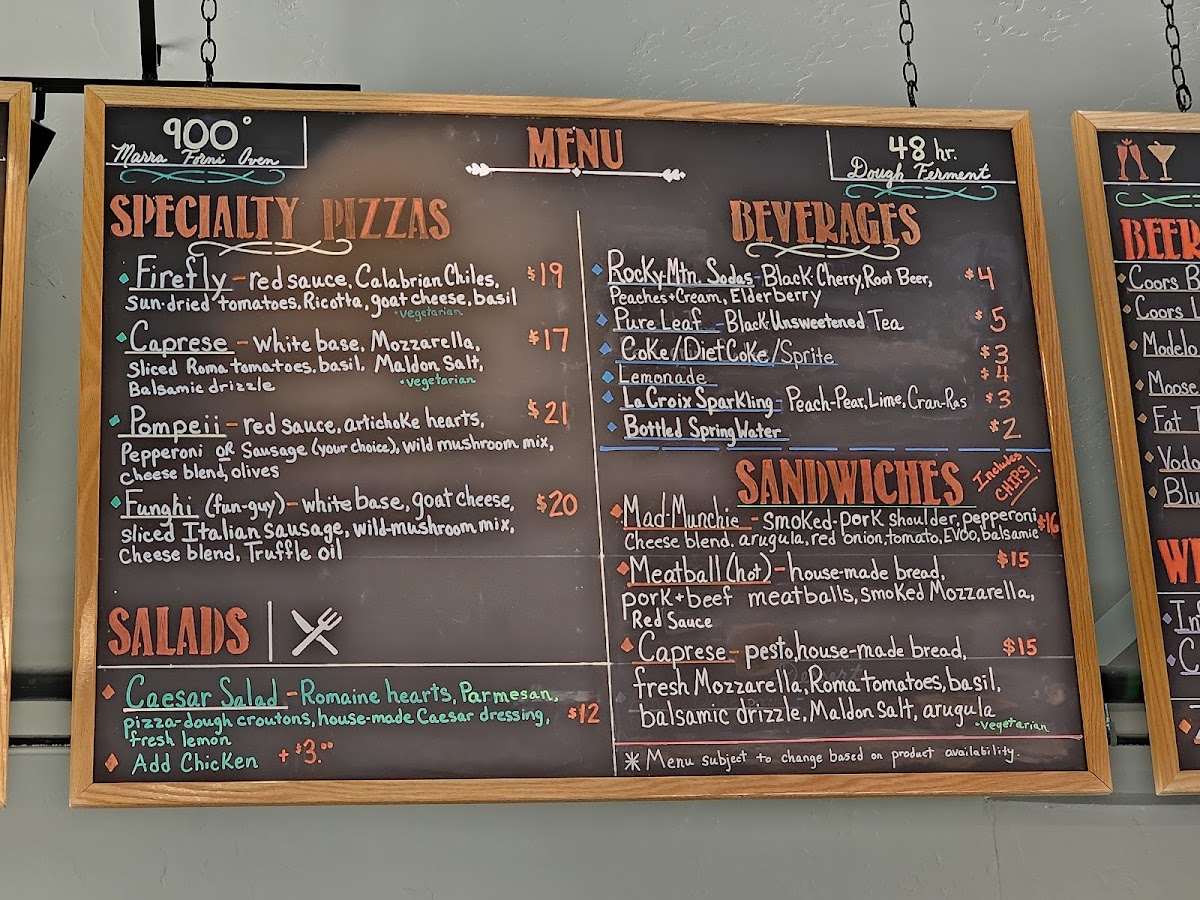 900°
Marra Forni Oven
MENU
48 hr.
Dough Ferment
SPECIALTY PIZZAS
Firefly - red sauce, Calabrian Chiles, $19
sun-dried tomatoes, Ricotta, goat cheese, basil
•vegetarian
Caprese - white base, Mozzarella, $17
sliced Roma tomatoes, basil, Maldon Salt,
Balsamic drizzle •vegetarian
Pompeii - red sauce, artichoke hearts, $21
Pepperoni OR Sausage (your choice), wild mushroom mix,
cheese blend, olives
Funghi (fun-guy) - white base, goat cheese, $20
sliced Italian sausage, wild-mushroom mix,
cheese blend, Truffle oil
SALADS
Caesar Salad - Romaine hearts, Parmesan,
pizza-dough croutons, house-made Caesar dressing, $12
fresh lemon
Add Chicken + $3.00
BEVERAGES
Rocky Mtn. Sodas - Black Cherry, Root Beer, $4
Peaches + Cream, Elderberry
Pure Leaf - Black Unsweetened Tea $5
Coke/Diet Coke/Sprite $3
Lemonade $4
La Croix Sparkling - Peach-Pear, Lime, Cran-Ras $3
Bottled Spring Water $2
SANDWICHES
Includes
CHIPS!
Mad-Munchie - smoked-pork shoulder, pepperoni, $16
cheese blend, arugula, red onion, tomato, EVOO, balsamic
Meatball (hot) - house-made bread, $15
pork + beef meatballs, smoked Mozzarella,
Red Sauce
Caprese - pesto, house-made bread, $15
fresh Mozzarella, Roma tomatoes, basil,
balsamic drizzle, Maldon Salt, arugula
•vegetarian
* Menu subject to change based on product availability.
BEER
Coors B
Coors
Modelo
Moose
Fat
Vodo
Blu